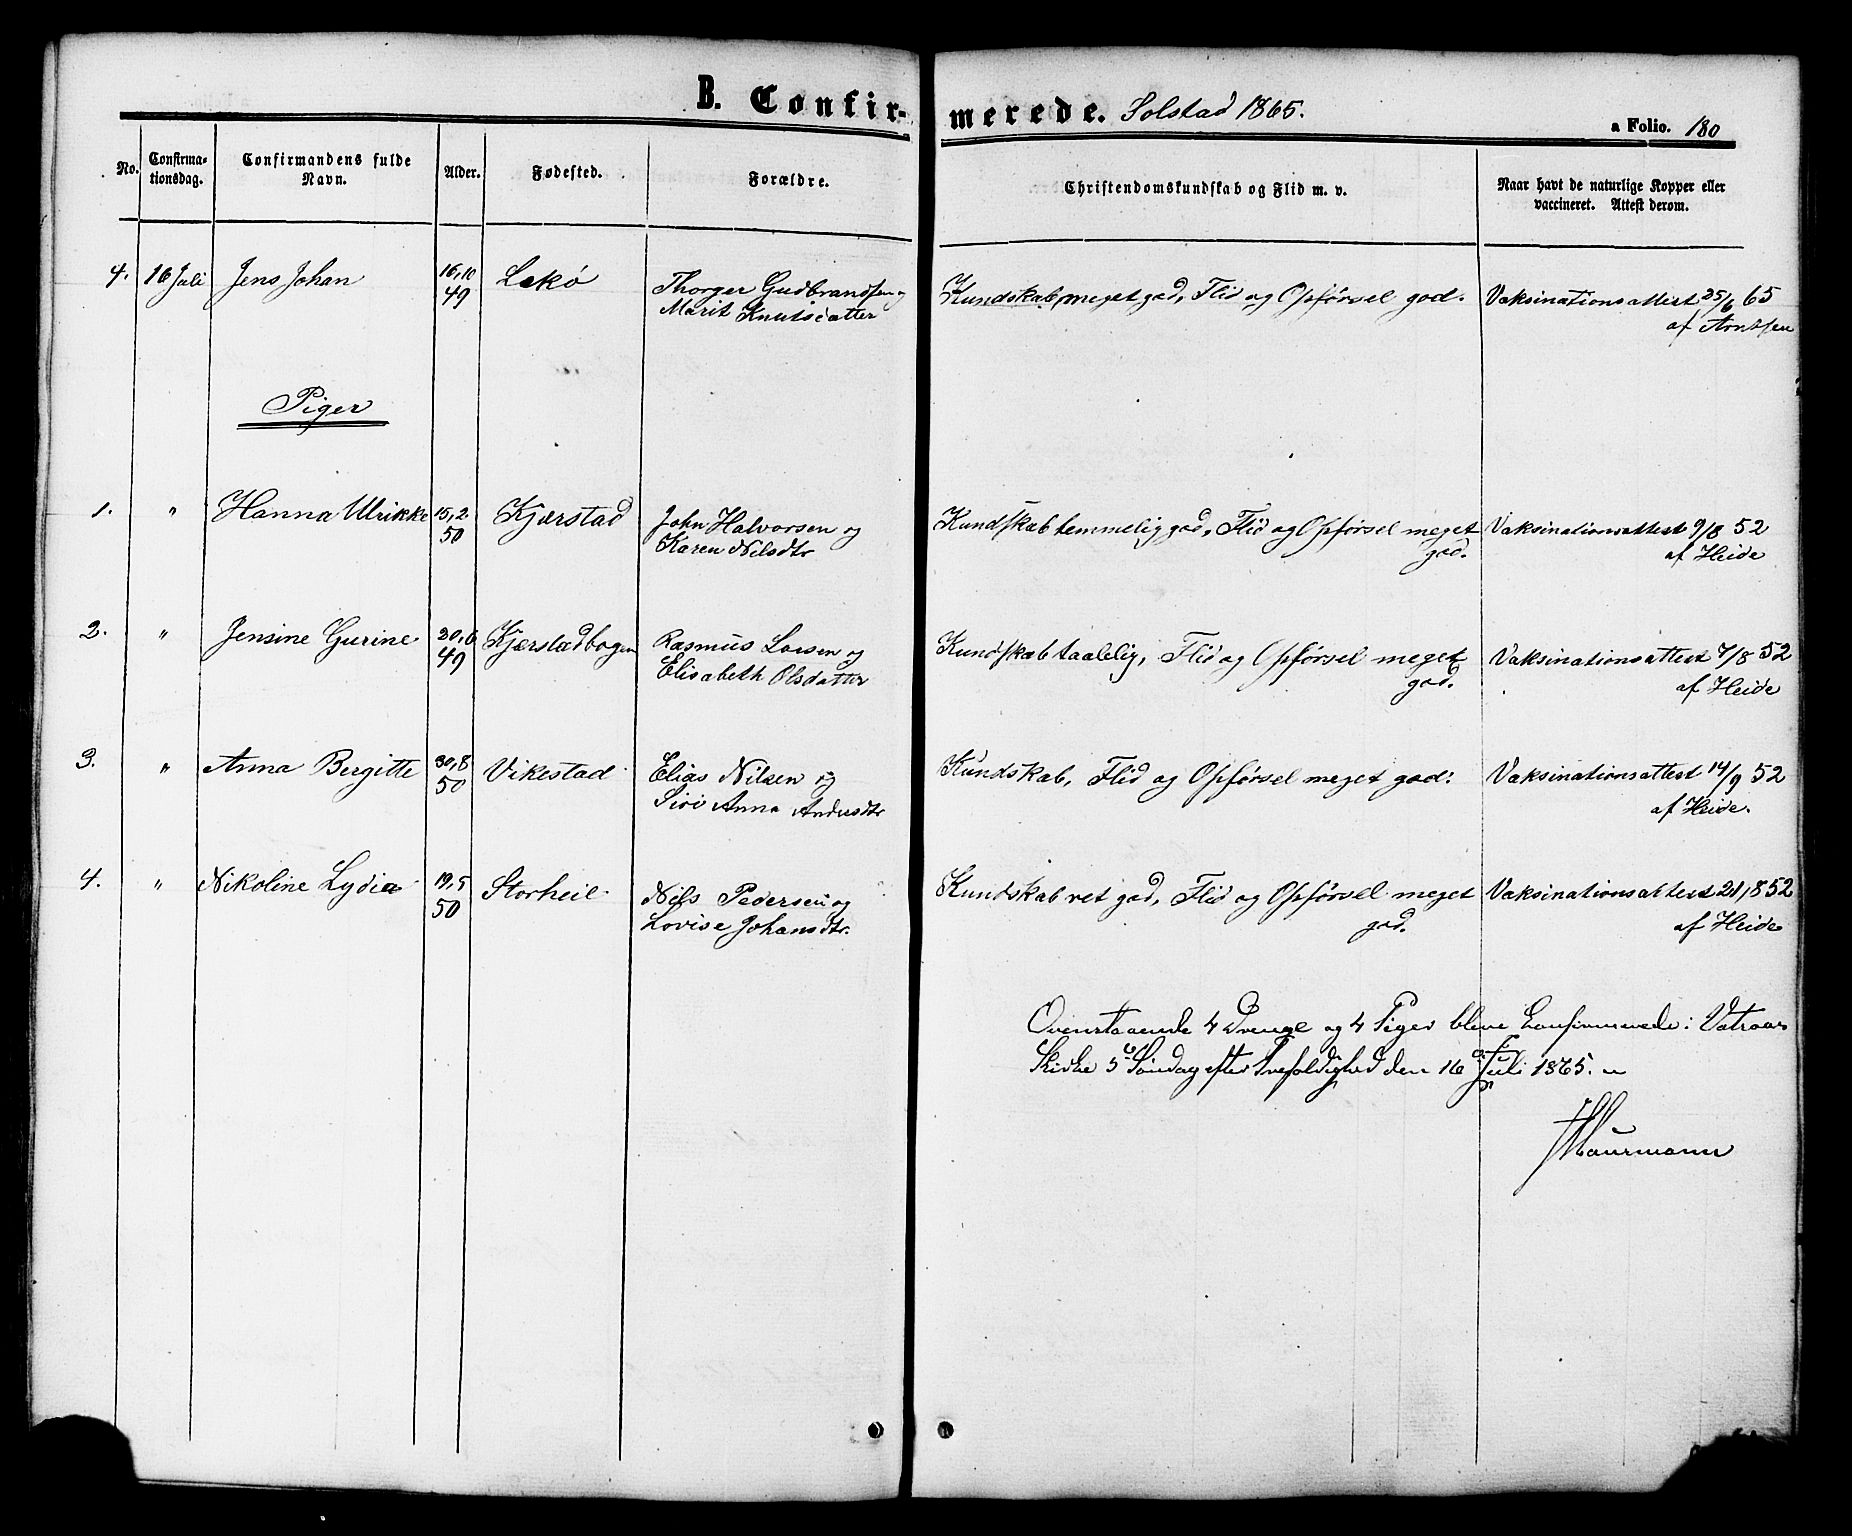 B. Confirmerede. Solstad 1865.
a Folio. 180
No. Confirmationsdag. Confirmandens fulde Navn. Alder. Fødested. Forældre. Christendomskundskab og Flid m. v. Naar havt de naturlige Kopper eller vaccineret. Attest derom.
4. 16 Juli Jens Johan 16,10 49 Lekø Thorger Gudbrandsen og Kundskab meget god, Flid og Opførsel god. Vaksinationsattest 25/6 65
Marit Knutsdatter af Arntsen
Piger
1. " Hanna Ulrikke 15,2 50 Kjærstad John Halvorsen og Kundskab temmelig god, Flid og Opførsel meget Vaksinationsattest 9/8 52
Karen Nilsdtr god. af Heide
2. " Jensine Gurine 20,6 49 Kjærstadbogen Rasmus Larsen og Kundskab taalelig, Flid og Opførsel meget Vaksinationsattest 7/8 52
Elisabeth Olsdatter god. af Heide
3. " Anna Bergitte 30,8 50 Vikestad Elias Nilsen og Kundskab, Flid og Opførsel meget god. Vaksinationsattest 14/9 52
Siri Anna Andersdtr af Heide.
4. " Nikoline Lydia 19,5 50 Storheil Nils Pedersen og Kundskab ret god, Flid og Opførsel meget Vaksinationsattest 21,8 52
Lovise Johansdtr. god. af Heide
Ovenstaaende 4 Drenge og 4 Piger bleve Confirmerede i Vatraas
Kirke 5 Søndag efter Trefoldighed den 16 Juli 1865.